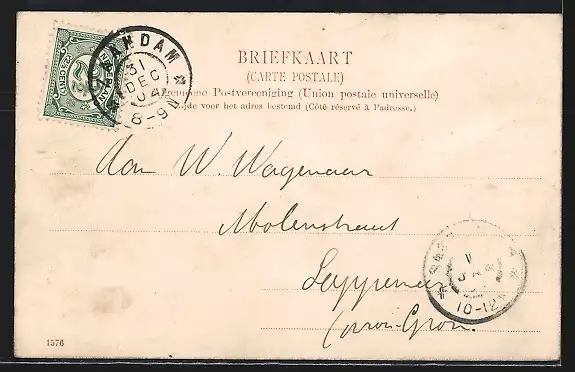 BRIEFKAART
(CARTE POSTALE)
Algemeene Postvereeniging (Union postale universelle)
Zijde voor het adres bestemd (Côté réservé à l'adresse.)
ZAANDAM
31
DEC
04
8-9
Aan W. Wagenaar
Molenstraat
Sappemeer
(prov. Gron.
1
JA
10-12
1576